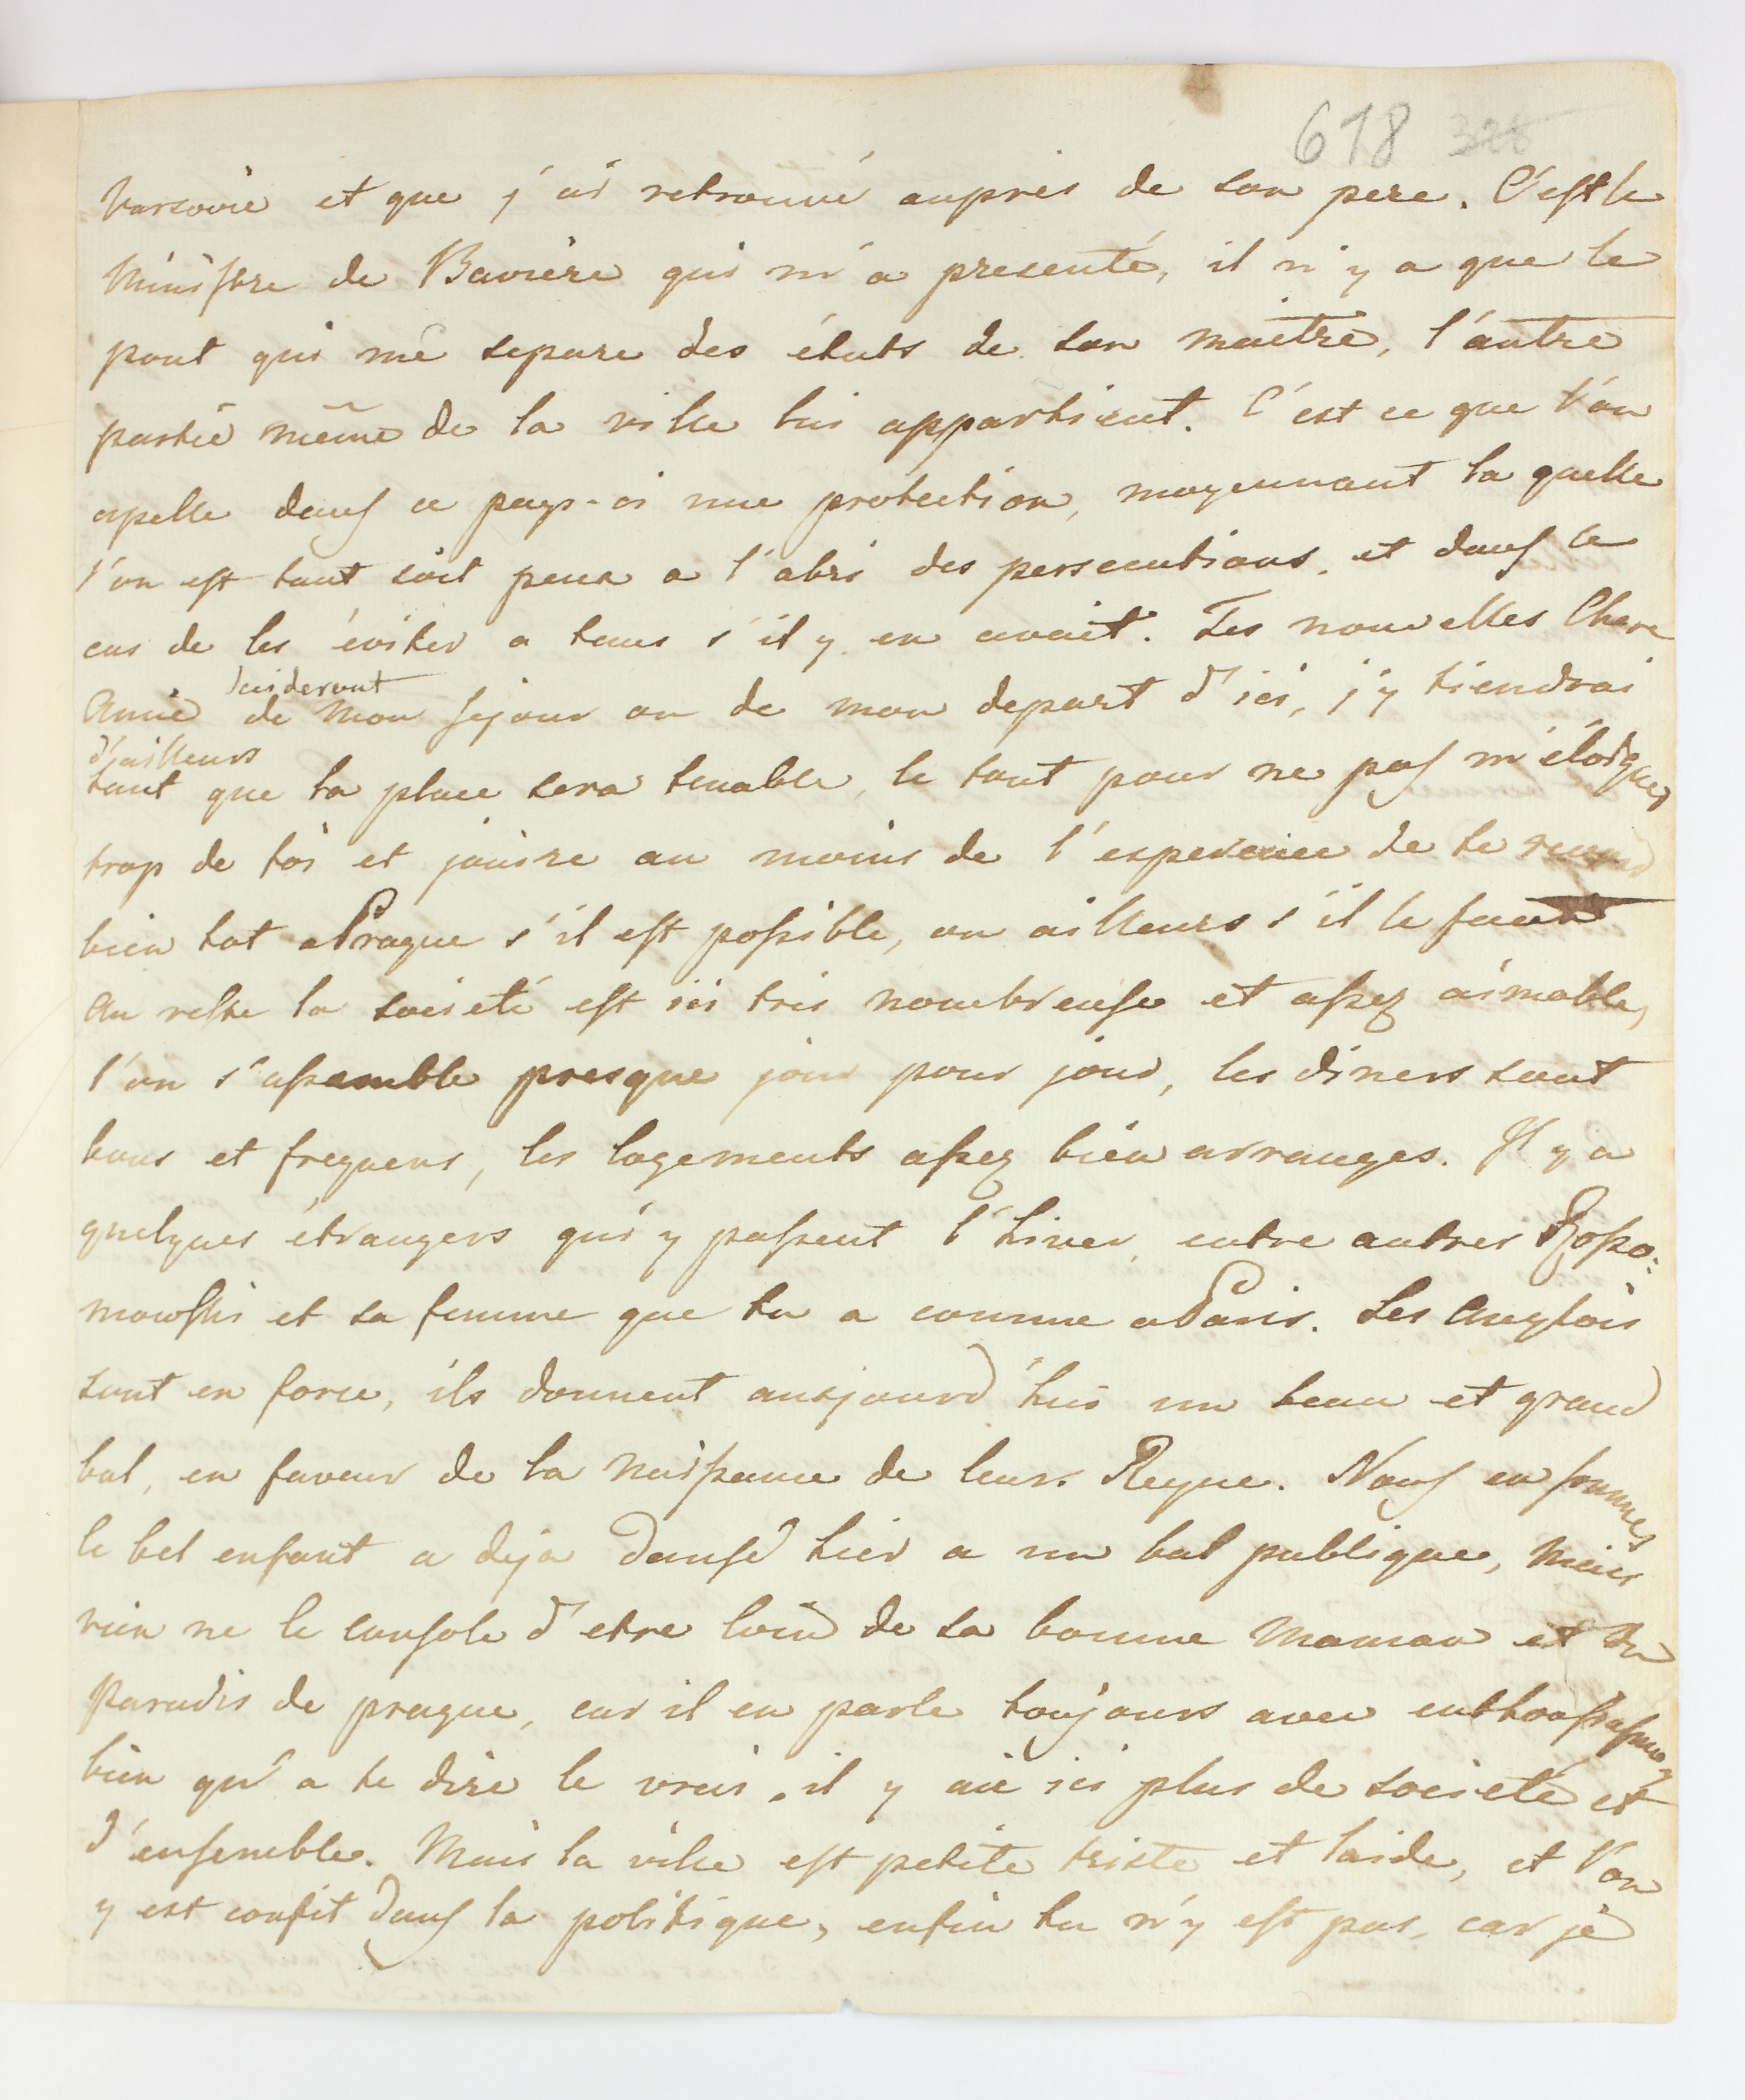 618 328
Varsovie et que j'ai retrouvé auprès de son pere. C'est le
Ministre de Baviere qui m'a presenté, il n'y a que le
pont qui me separe des états de son maitre, l'autre
partie même de la ville lui appartient. C'est ce que l'on
apelle dans ce pays-ci une protection, moyennant la quelle
l'on est tant soit peux a l'abri des persecutions, et dans le
cas de les éviter a tems s'il y en avait. Tes nouvelles Chere
Amie decideront de Mon sejour ou de mon depart d'ici, j'y tiendrai
d'ailleurs
tant que la place sera tenable, le tout pour ne pas m'éloigner
trop de toi et jouire au moins de l'esperence de te
bien tot a Prague s'il est possible, ou ailleurs s'il le faut
Au reste la societé est ici tres nombreuse et assez aimable,
l'on s'assemble presque jour pour jour, les diners sont
bons et frequens, les logements assez bien arranges. Il y a
quelques étrangers qui y passent l'hiver, entre autres
mowski et sa femme que tu a connue a Paris. Les Anglois
sont en force, ils donnent aujourd'hui un beau et grand
bal, en faveur de la naissance de leur Reyne. Nous en sommes
le bel enfant a deja dansé hier a un bal publique, Mais
rien ne le console d'etre loin de sa bonne Maman et du
Paradis de prague, car il en parle toujours avec enthousiasme
bien qu'a te dire le vrai, il y aie ici plus de societé et
d'ensemble. Mais la ville est petite triste et laide, et l'on
y est confit dans la politique, enfin tu n'y est pas, car je